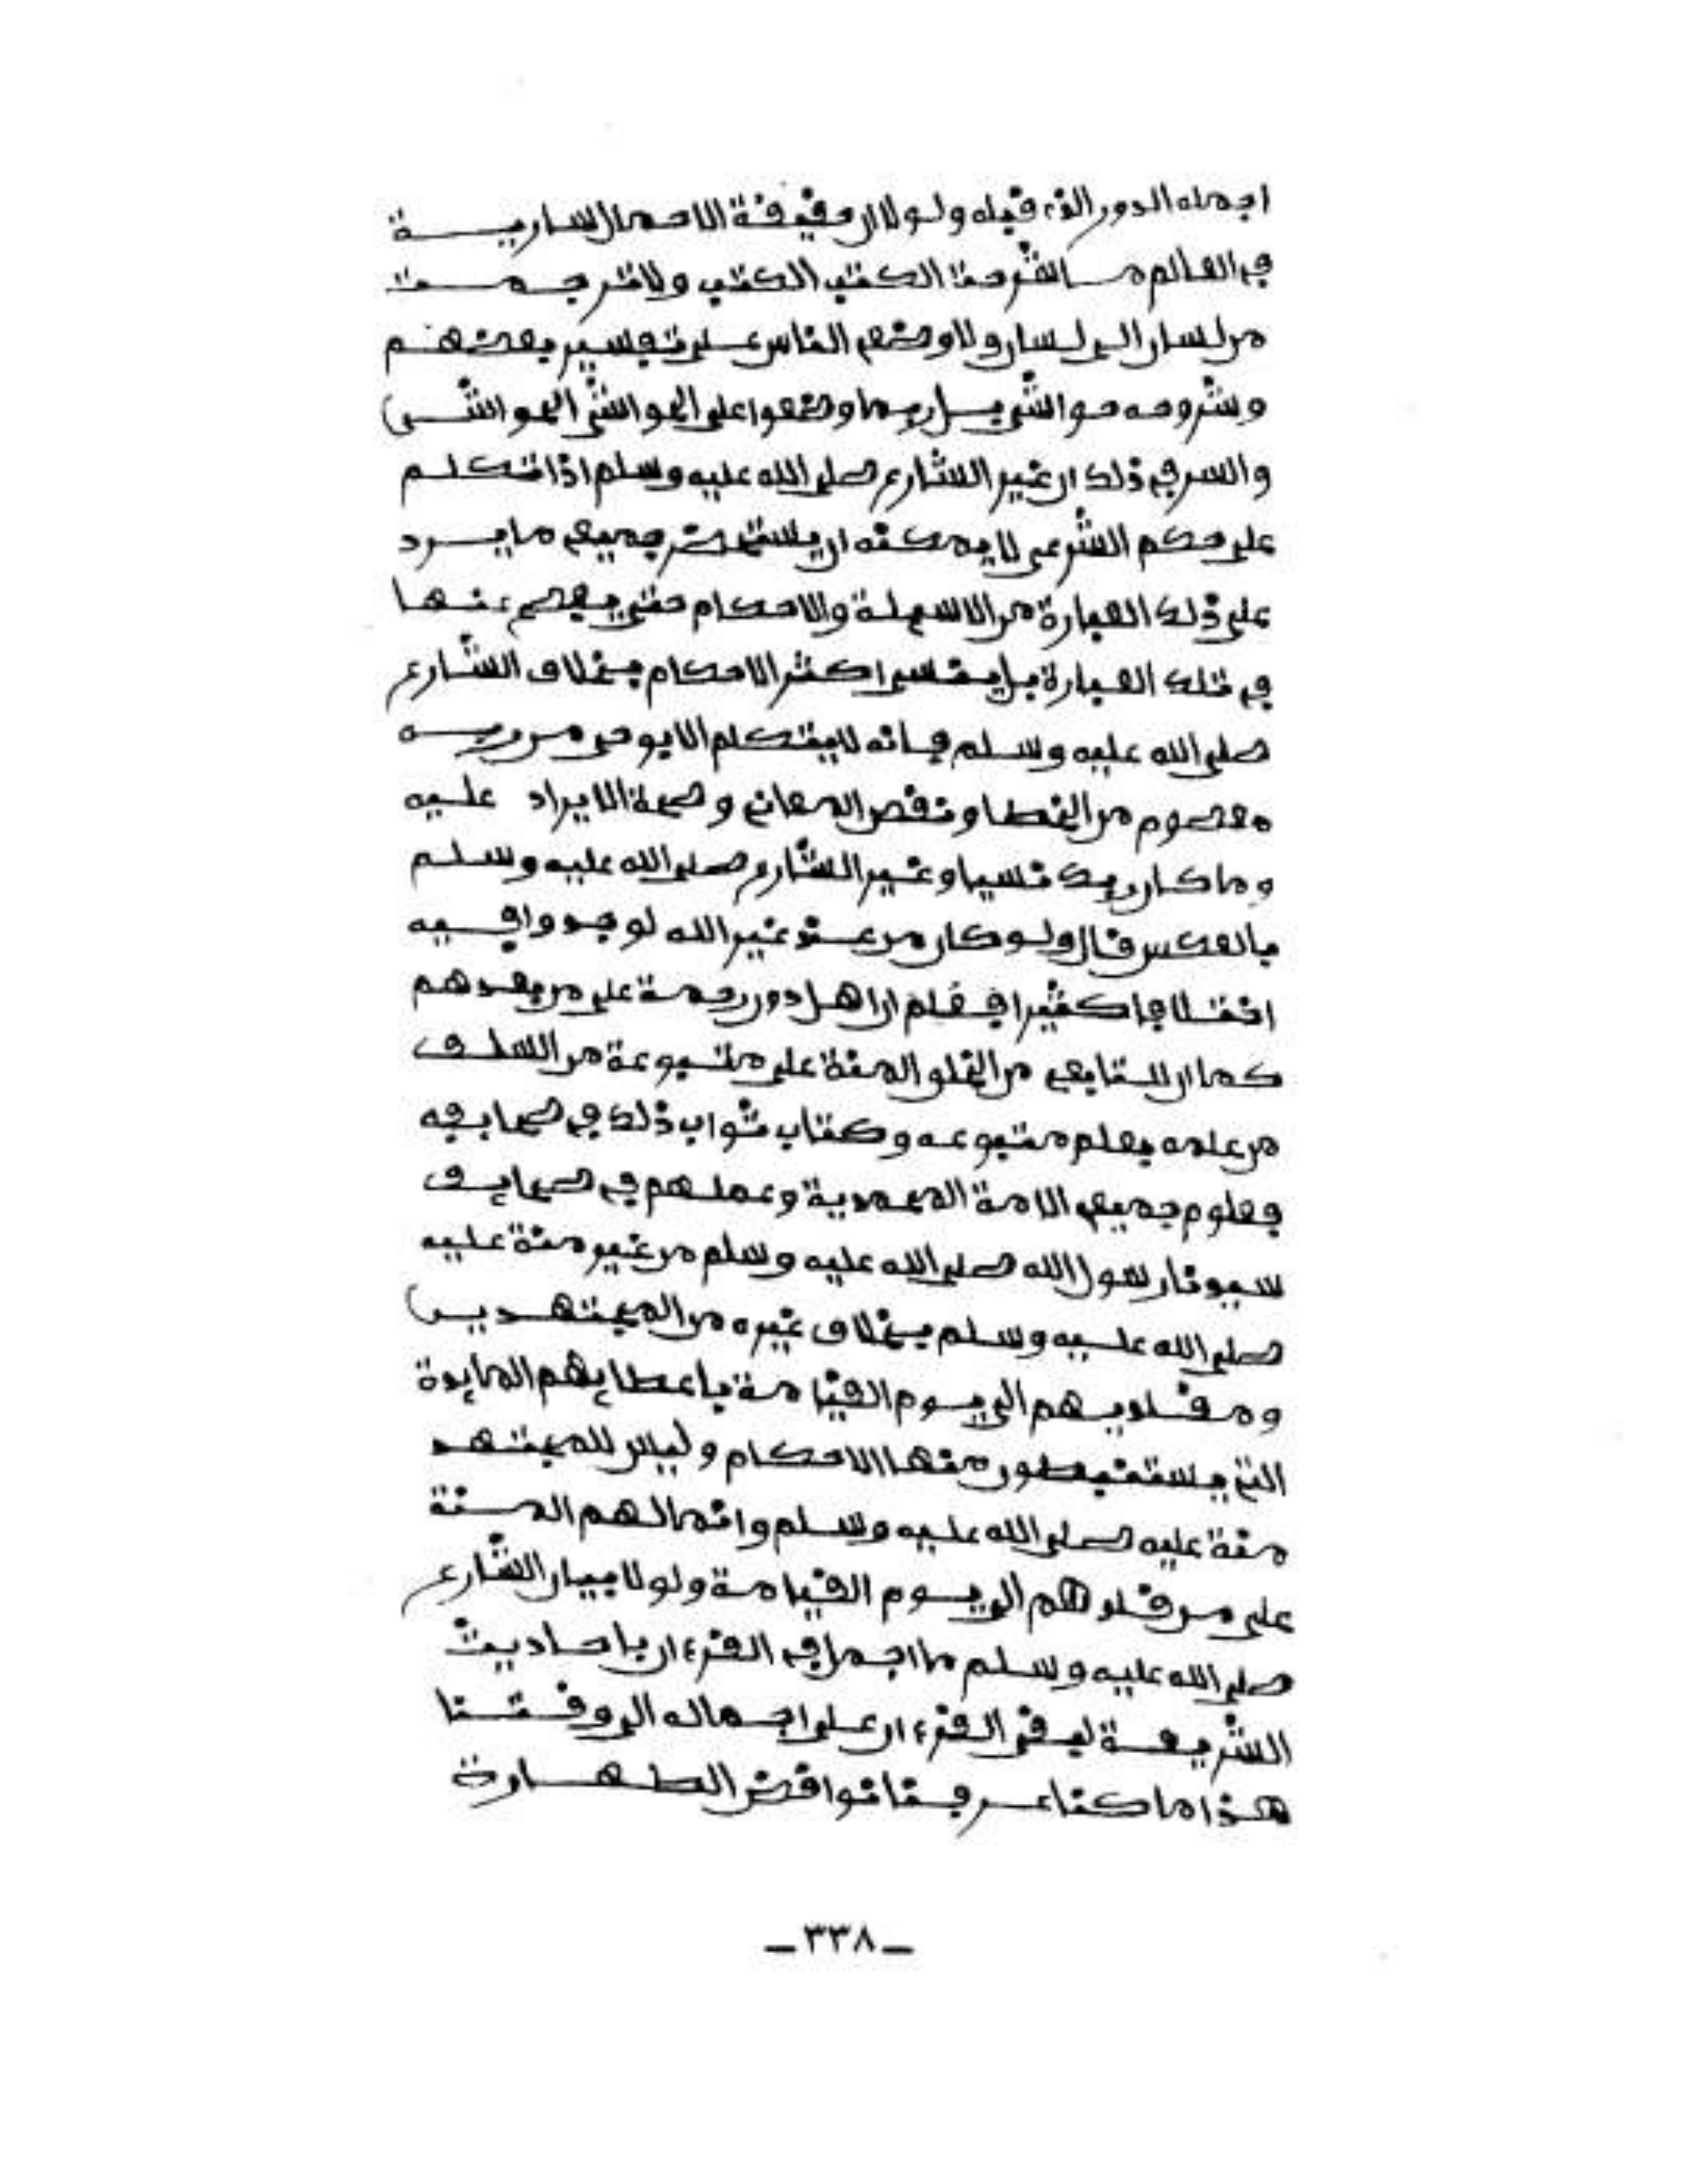 اجمله الدور الذي قبله ولولا ان حقيقة الاجمال سارية
في العالم ما شرحت الكتب الكتب ولا ترجمت
من لسان الى لسان ولا وضع الناس على تفسير بعضهم
وشروحه حواشي بل ربما وضعوا على الحواشي الحواشي
والسر في ذلك ان غير الشارع صلى الله عليه وسلم اذا تكلم
على حكم الشرعى لا يمكنه ان يستحضر جميع ما يرد
على ذلك العبارة من الاسئلة والاحكام حتى يفصح عنها
في تلك العبارة بل ينسى اكثر الاحكام بخلاف الشارع
صلى الله عليه وسلم فانه لا يتكلم الا بوحى من ربه
معصوم من الخطا ونقص المعاني وصحة الايراد عليه
وما كان ربك نسيا وغير الشارع صلى الله عليه وسلم
بالعكس قال ولو كان من عند غير الله لوجدوا فيه
اختلافا كثيرا فعلم ان اهل دور رحمة على من بعدهم
كما ان للتابع من الخلق المنة على متبوعة من السلف
من علمه بعلم متبوعه وكتاب ثواب ذلك في صحايفه
فعلوم جميع الامة المحمدية وعملهم في صحايف
سيدنا رسول الله صلى الله عليه وسلم من غير منة عليه
صلى الله عليه وسلم بخلاف غيره من المجتهدين
ومقلديهم الى يوم القيامة باعطايهم المايدة
التي يستنبطون منها الاحكام وليس للمجتهد
منة عليه صلى الله عليه وسلم وانما لهم المنة
على من قلدهم الى يوم القيامة ولولا بيان الشارع
صلى الله عليه وسلم ما اجمل في القرءان باحاديث
الشريعة لبقى القرءان على اجماله الى وقتنا
هذا ما كنا عرفنا نواقض الطهارة
ـ ٣٣٨ ـ